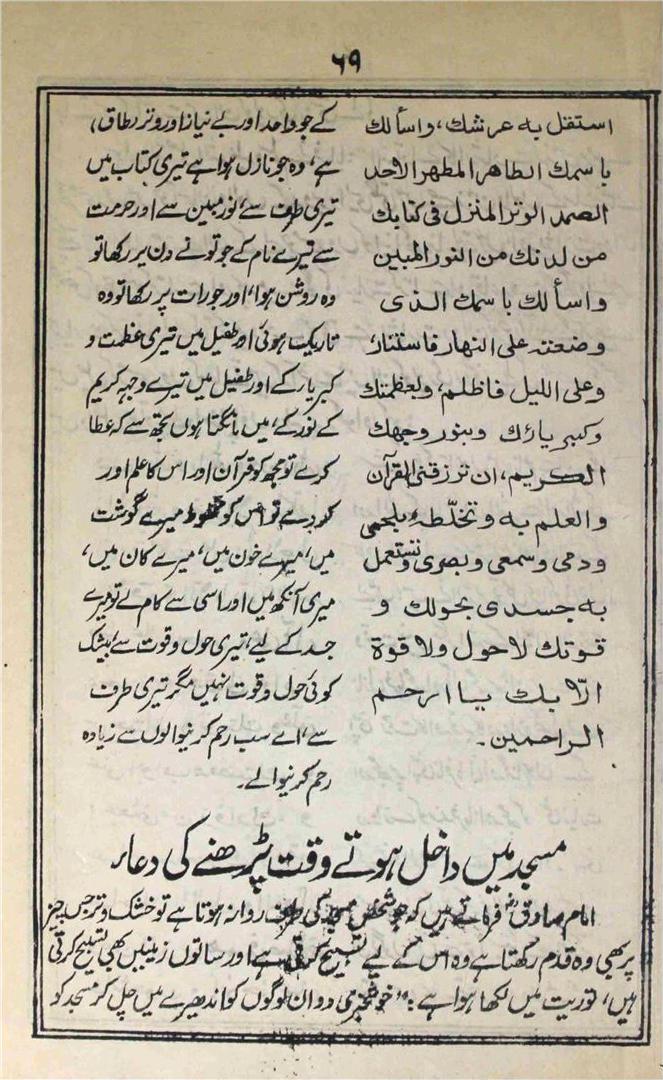 ۶۹
استقل به عرشك، واسألك
باسمك الطاهر المطهر الاحد
الصمد الوتر المنزل فى كتابك
من لدنك من النور المبين
واسألك باسمك الذى
وضعته على النهار فاستنار،
وعلى الليل فاظلم، وبعظمتك
وكبريائك وبنور وجهك
الكريم، ان ترزقنى القرآن
والعلم به وتخلّطه بلحمى
ودمى وسمعى وبصرى وتستعمل
به جسدى بحولك و
قوتك لا حول ولا قوة
الّا بك يا ارحم
الراحمين۔
کے جو واحد اور بے نیاز اور وتر (طاق)
ہے، وہ جو نازل ہوا ہے تیری کتاب میں
تیری طرف سے، نور مبین سے اور حرمت
سے تیرے نام کے جو تو نے دن پر رکھا تو
وہ روشن ہوا، اور جو رات پر رکھا تو وہ
تاریک ہوئی اور طفیل میں تیری عظمت و
کبریا کے اور طفیل میں تیرے وجہہ کریم
کے نور کے، میں مانگتا ہوں تجھ سے کہ عطا
کرے تو مجھ کو قرآن اور اس کا علم اور
کر دے تو اس کو مخلوط میرے گوشت
میں، میرے خون میں، میرے کان میں،
میری آنکھ میں اور اسی سے کام لے تو میرے
جسد کے لیے، تیری حول و قوت سے، بیشک
کوئی حول و قوت نہیں مگر تیری طرف
سے، اے سب رحم کرنیوالوں سے زیادہ
رحم کرنیوالے۔
مسجد میں داخل ہوتے وقت پڑھنے کی دعاء
امام صادقؑ فرماتے ہیں کہ جو شخص مسجد کی طرف روانہ ہوتا ہے تو خشک و تر جس چیز
پر بھی وہ قدم رکھتا ہے وہ اس کے لیے تسبیح کرتی ہے اور ساتوں زمینیں بھی تسبیح کرتی
ہیں، توریت میں لکھا ہوا ہے: "خوشخبری دو ان لوگوں کو اندھیرے میں چل کر مسجد کو